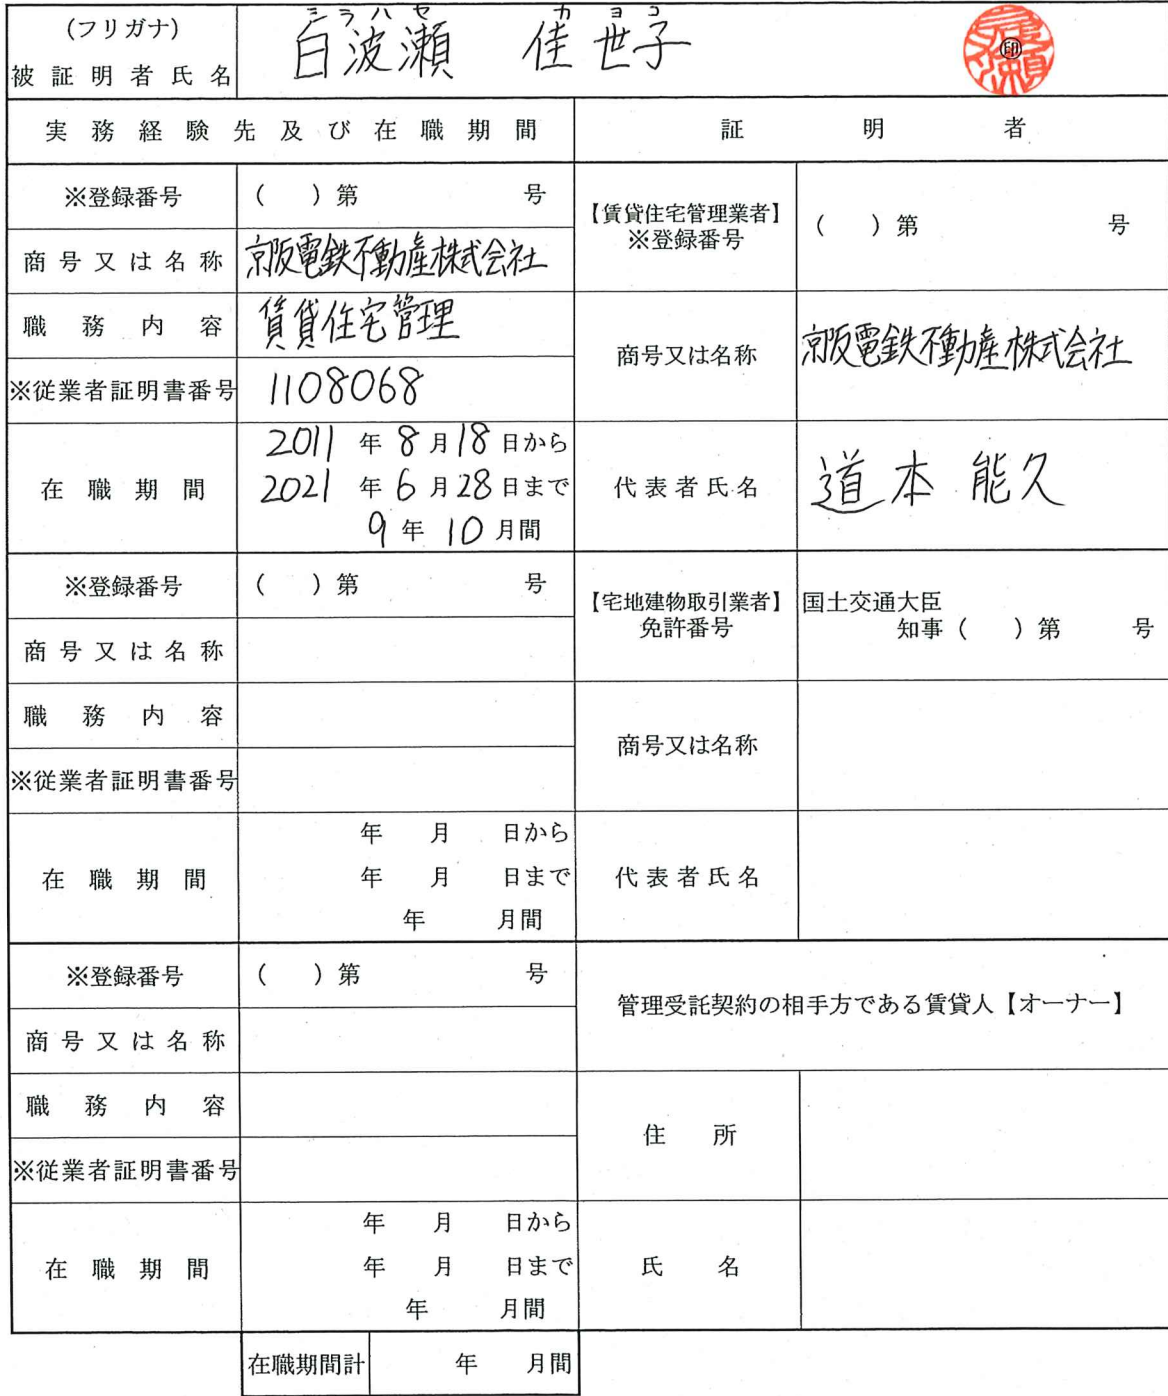 シラハセ カヨコ
(フリガナ)
被証明者氏名
白波瀬 佳世子
印
実務経験先及び在職期間
証明者
※登録番号
( )第 号
商号又は名称
京阪電鉄不動産株式会社
職務内容
賃貸住宅管理
※従業者証明書番号
1108068
在職期間
2011 年 8 月 18 日から
2021 年 6 月 28 日まで
9 年 10 月間
【賃貸住宅管理業者】
※登録番号
( )第 号
商号又は名称
京阪電鉄不動産株式会社
代表者氏名
道本 能久
※登録番号
( )第 号
商号又は名称
職務内容
※従業者証明書番号
在職期間
年 月 日から
年 月 日まで
年 月間
【宅地建物取引業者】
免許番号
国土交通大臣
知事( )第 号
商号又は名称
代表者氏名
※登録番号
( )第 号
商号又は名称
職務内容
※従業者証明書番号
在職期間
年 月 日から
年 月 日まで
年 月間
管理受託契約の相手方である賃貸人【オーナー】
住所
氏名
在職期間計
年 月間